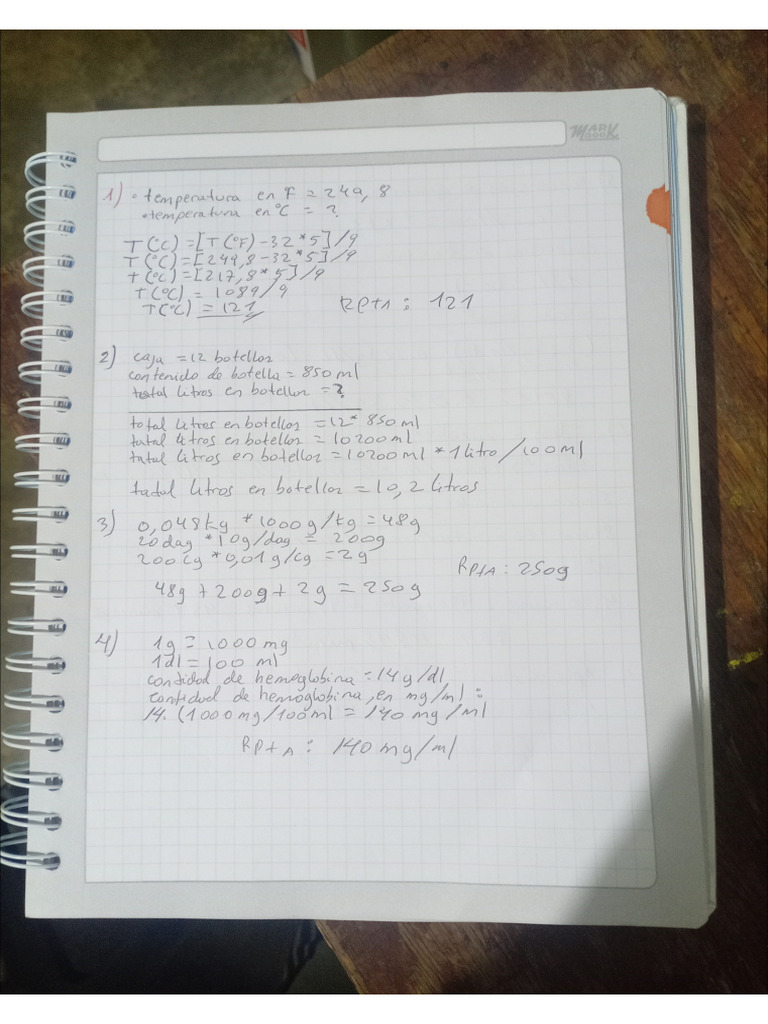 MARK BOOK
1) • temperatura en °F = 249,8
• temperatura en °C = ?
T(°C) = [T(°F) - 32 * 5] / 9
T(°C) = [249,8 - 32 * 5] / 9
T(°C) = [217,8 * 5] / 9
T(°C) = 1089/9
T(°C) = 121
RptA : 121
2) caja = 12 botellas
contenido de botella = 850 ml
total litros en botellas = ?
total litros en botellas = 12 * 850 ml
total litros en botellas = 10200 ml
total litros en botellas = 10200 ml * 1 litro / 100 ml
total litros en botellas = 10,2 litros
3) 0,048 kg * 1000 g/kg = 48g
20 dag * 10 g/dag = 200g
200 cg * 0,01 g/cg = 2g
RptA : 250g
48g + 200g + 2g = 250g
4) 1g = 1000 mg
1dl = 100 ml
cantidad de hemoglobina = 14 g/dl
cantidad de hemoglobina, en mg/ml :
14. (1000 mg/100 ml = 140 mg/ml
RptA : 140 mg/ml